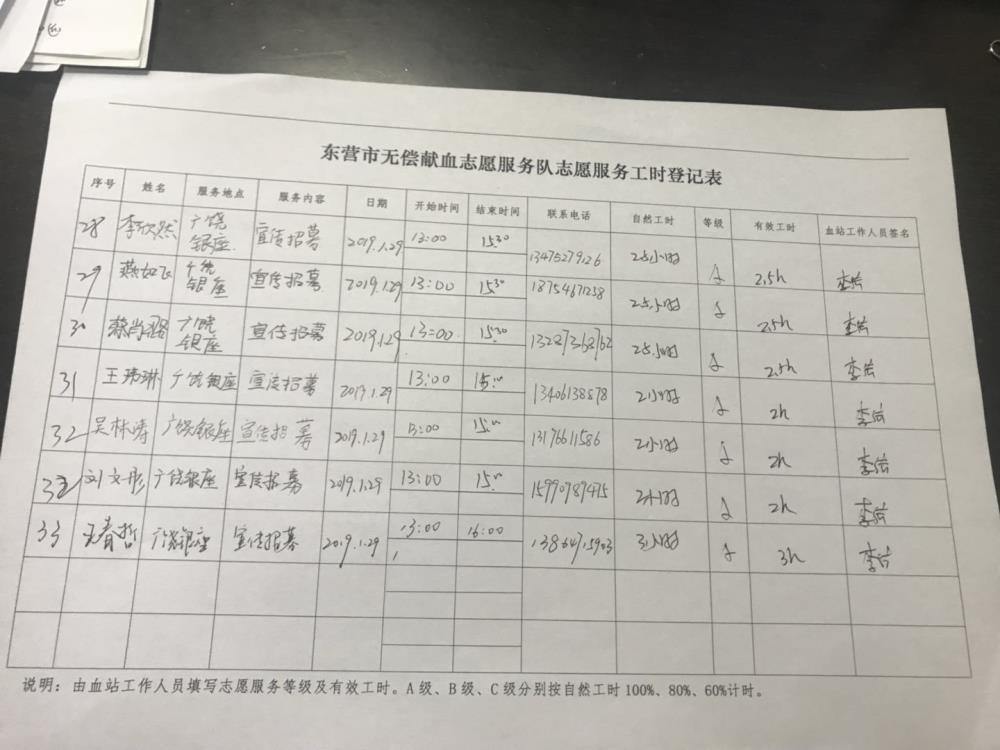 东营市无偿献血志愿服务队志愿服务工时登记表
序号 姓名 服务地点 服务内容 日期 开始时间 结束时间 联系电话 自然工时 等级 有效工时 血站工作人员签名
28 李欣然 广饶银座 宣传招募 2019.1.29 13:00 15:30 13475279126 2.5小时 A 2.5h
29 燕如飞 广饶银座 宣传招募 2019.1.29 13:00 15:30 18754671238 2.5小时 A 2.5h
30 广饶银座 宣传招募 2019.1.29 13:00 15:30 13287368762 2.5小时 A 2.5h
31 王琳 广饶银座 宣传招募 2019.1.29 13:00 15:00 13406138878 2小时 A 2h
32 吴林涛 广饶银座 宣传招募 2019.1.29 13:00 15:00 13176611586 2小时 A 2h
刘文彤 广饶银座 宣传招募 2019.1.29 13:00 15:00 15990787475 2小时 A 2h
33 王春哲 广饶银座 宣传招募 2019.1.29 13:00 16:00 13864715903 3小时 A 3h
说明：由血站工作人员填写志愿服务等级及有效工时。A 级、B 级、C 级分别按自然工时 100%、80%、60%计时。